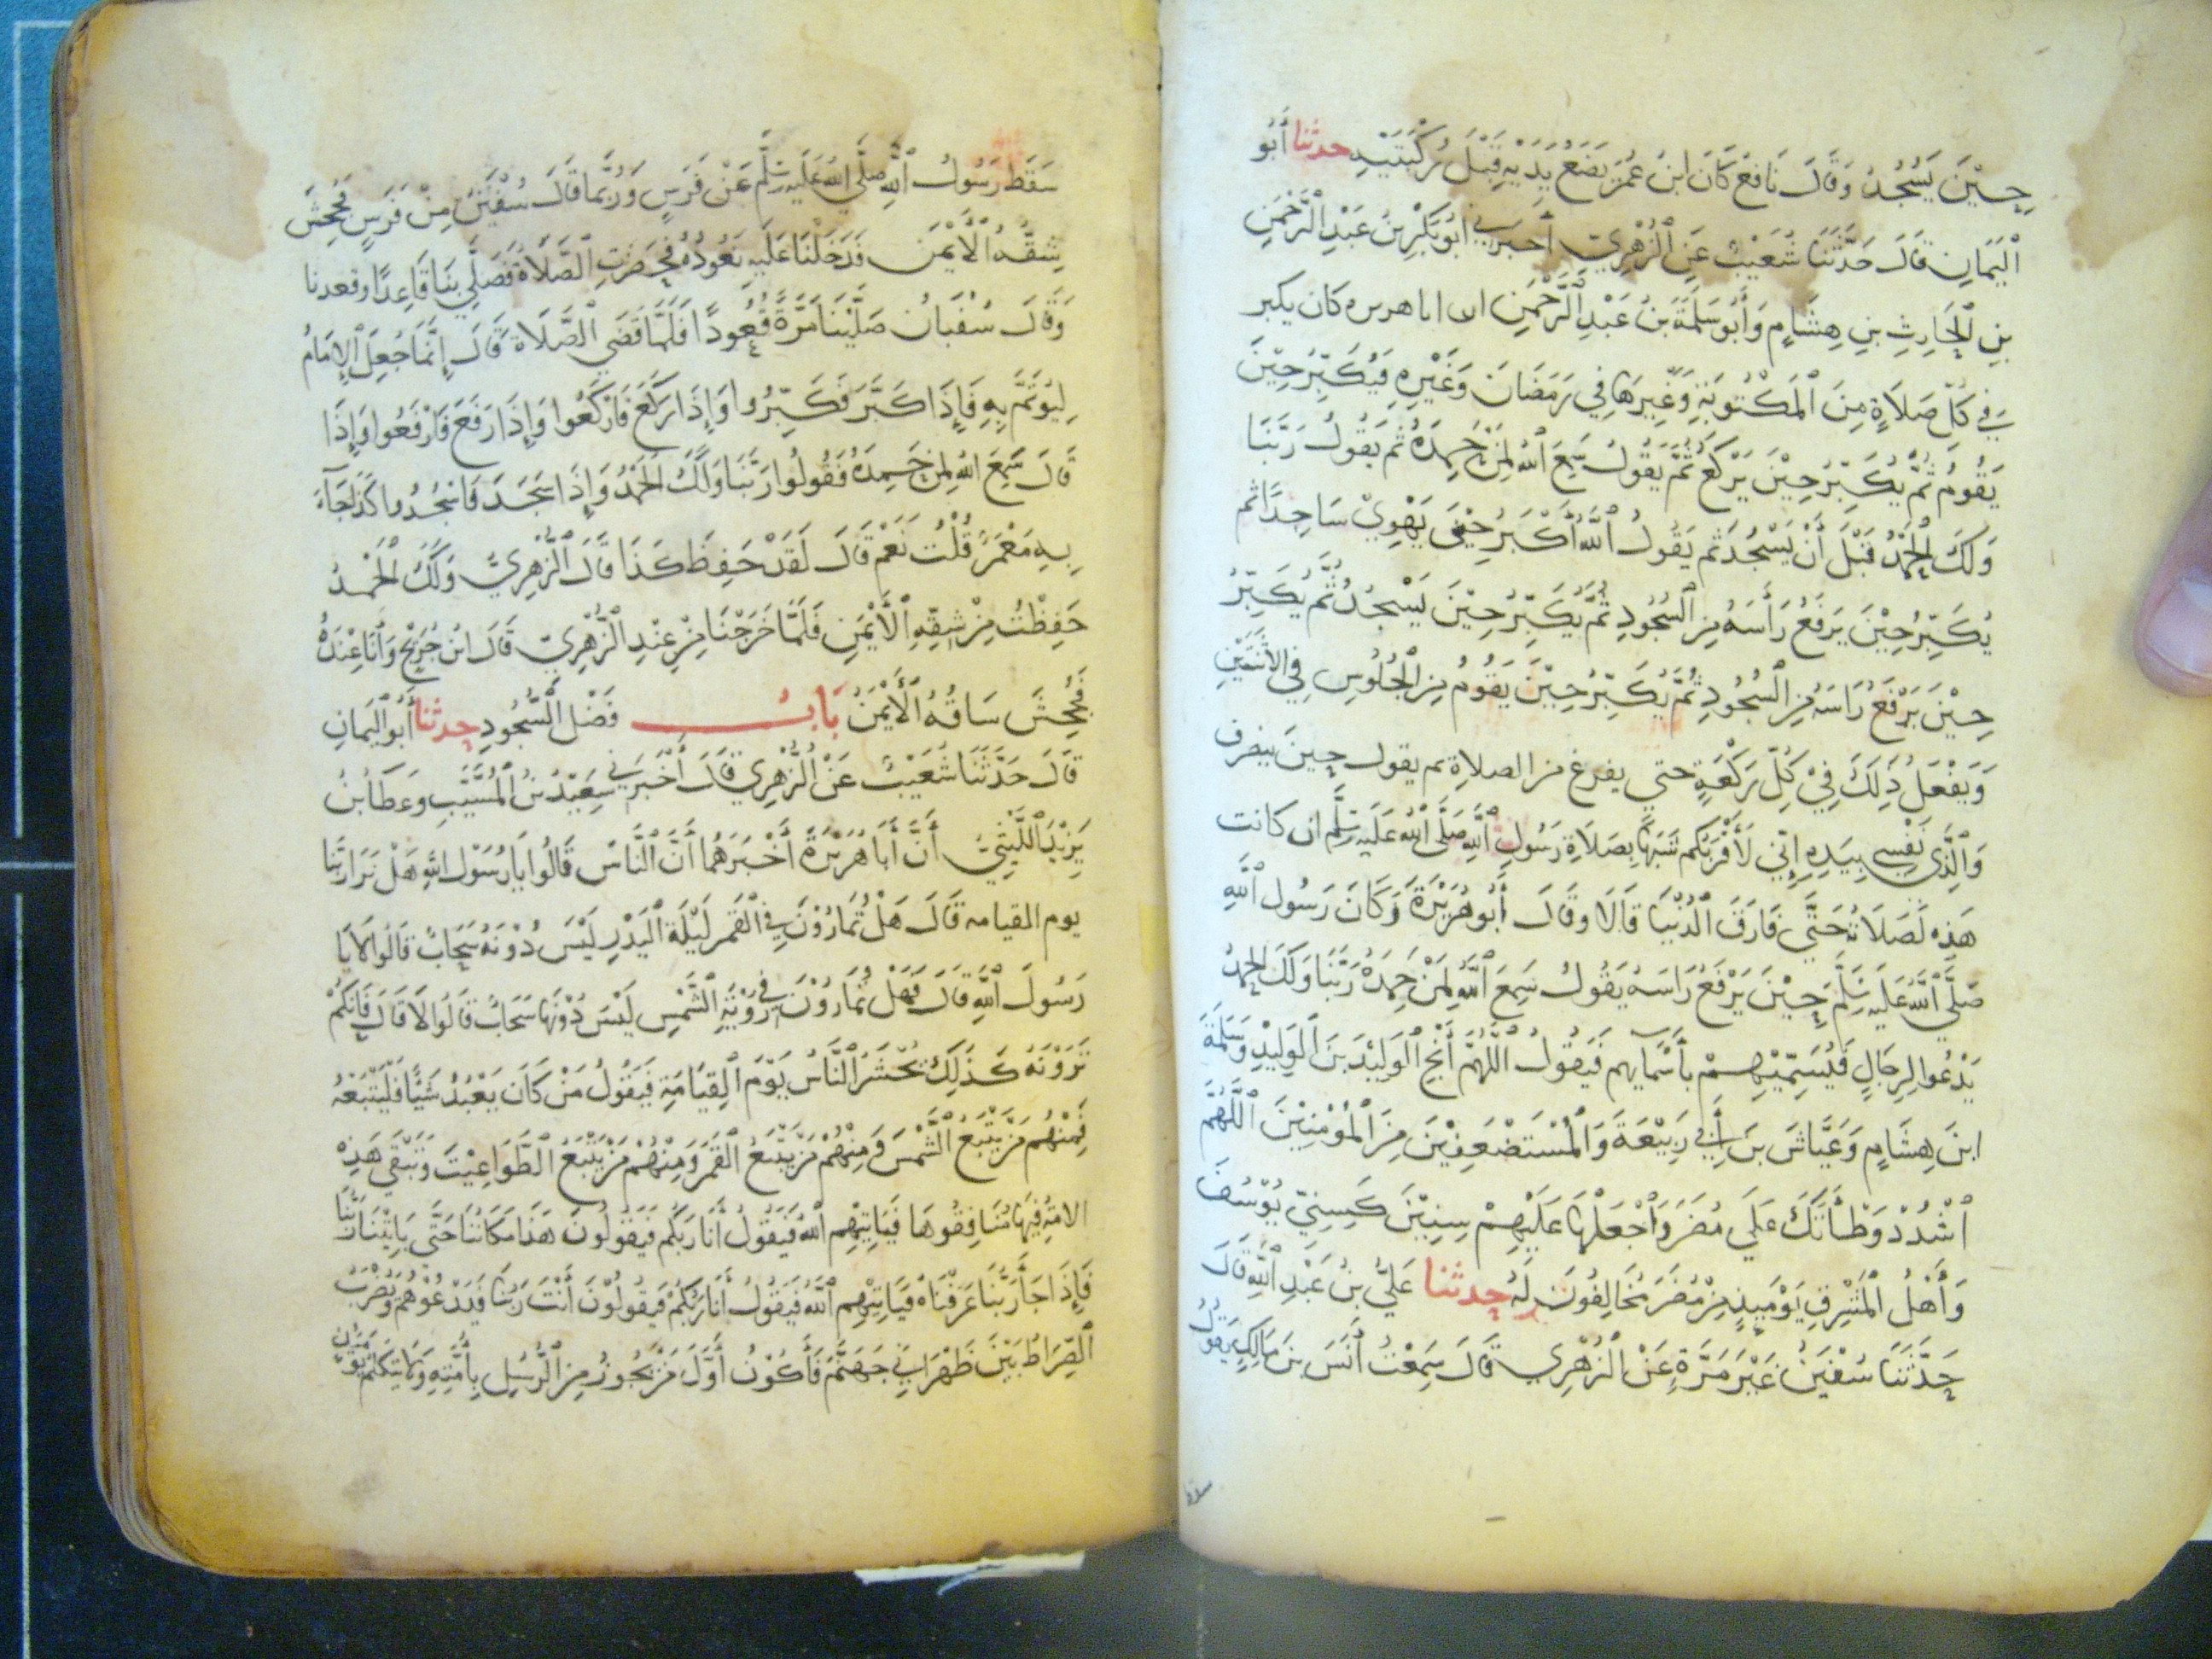 حِيْنَ يَسْجُدُ وَقَالَ نَافِعْ كَانَ ابنُ عُمَرَ يَضَعُ يَدَيْهِ قَبْلَ رُكْبَتَيْهِ حدثنا أبُو
الْيَمَانِ قَالَ حَدَّثَنَا شُعَيْبٌ عَنِ الزُّهْرِيّ أخبرني ابُو بَكْرِ بْنُ عَبْدِ الرَّحْمَنِ
بنِ الْحَارِثِ بنِ هِشَامٍ وَأَبُو سَلَمَةَ بنُ عَبْدِ الرَّحْمَنِ ان ابا هريره كان يكبر
فِي كُلّ صَلَاةٍ مِنَ الْمَكْتُوبَةِ وَغَيْرِهَا فِي رَمَضَانَ وَغَيْرِهِ فَيُكَبِّرُ حِيْنَ
يَقُومُ ثُمَّ يُكَبِّرُ حِيْنَ يَرْكَعُ ثُمَّ يَقُولُ سَمِعَ اللهُ لِمَنْ حَمِدَهُ ثُمَّ يَقُولُ رَبَّنَا
وَلَكَ الْحَمْدُ قَبْلَ أَنْ يَسْجُدَ ثم يَقُولُ اللهُ أَكْبَرُ حِيْنَ يَهْوِيْ سَاجِدًا ثم
يُكَبِّرُ حِيْنَ يَرْفَعُ رَأْسَهُ مِنَ السُّجُودِ ثُمَّ يُكَبِّرُ حِيْنَ يَسْجُدُ ثُمَّ يُكَبِّرُ
حِيْنَ يَرْفَعُ رَاسَهُ مِنَ السُّجُودِ ثُمَّ يُكَبِّرُ حِيْنَ يَقُومُ مِنَ الْجُلُوسِ فِي الاثْنَتَيْنِ
وَيَفْعَلُ ذَلِكَ فِيْ كُلِّ رَكْعَةٍ حتي يفرغ من الصلاةِ ثم يقول حينَ ينصرف
وَالَّذِي نَفْسِي بِيَدِهِ إِنِّي لَأَقْرَبُكُم شَبَهًا بِصَلَاةِ رَسُولِ اللهِ صَلَّى اللهُ عَلَيهِ وَسَلَّم ان كانت
هَذِهِ لَصَلَاتُهُ حَتَّى فَارَقَ الدُّنْيَا قَالَا وقَالَ أَبُو هُرَيْرَةَ وَكَانَ رَسُول اللهِ
صَلَّي اللهُ عَلَيهِ وَسَلَّم حِيْنَ يَرْفَعُ رَاسَهُ يَقُولُ سَمِعَ اللهُ لِمَنْ حَمِدَهُ رَبَّنَا وَلَكَ الحمدُ
يَدْعُو الرِجَالٍ فَيُسَمِّيْهِمْ بِأَسْمَايهِم فَيَقُولُ اللَّهُمَّ أَنْجِ الْوَلِيْدَ بنَ الْوَلِيْدِ وَسَلَمَةَ
ابنَ هِشَامٍ وَعَيَّاشَ بنَ أَبِي رَبِيْعَةَ وَالْمُسْتَضْعَفِيْنَ مِنَ الْمُؤْمِنِيْنَ اللَّهُمَّ
اشْدُدْ وَطْأَتَكَ عَلَي مُضَرَ وَاجْعَلْهَا عَلَيْهِمْ سِنِيْنَ كَسِنِيّ يُوْسُفَ
وَأَهْلُ الْمَشْرِقِ يَوْمَيِذٍ مِنْ مُضَرَ مُخَالِفُونَ لَهُ حدثنا عَليُّ بنُ عَبْدِ اللهِ قَالَ
حَدَّثَنَا سُفْيَنُ غَيْرَ مَرَّةٍ عَنْ الزُّهْرِي قَالَ سَمِعْتُ أَنَسَ بنَ مَالِكٍ يَقُولُ
سقط
سَقَطَ رَسُولُ اللهِ صَلَّي اللهُ عَلَيهِ وَسَلَّم عَنْ فَرَسٍ وَرُبَّمَا قَالَ سُفْيَنُ مِنْ فَرَسٍ فَجُحِشَ
شِقُّهُ الْأَيْمَن فَدَخَلْنَا عَلَيهِ نَعُودُهُ فَحَضَرَتِ الصَّلَاةُ فَصَلَّي بِنَا قَاعِدًا وقعدنا
وَقَالَ سُفْيَانُ صَلَّيْنَا مَرَّةً قُعُودًا فَلَمَّا قَضَي الصَّلَاةَ قَالَ إِنَّمَا جُعِلَ الإِمَامُ
لِيُوتَمَّ بِهِ فَإِذَا كَبَّرَ فَكَبِّرُوا وَإِذَا رَكَعَ فَارْكَعُوا وَإِذَا رَفَعَ فَارْفَعُوا وَإِذَا
قَالَ سَمِعَ اللهُ لِمَنْ حَمِدَهُ فَقُولُوا رَبَّنَا وَلَكَ الْحَمْدُ وَإِذَا سَجَدَ فَاسْجُدُوا كَذَا جَآءَ
بِهِ مَعْمَرٌ قُلْتُ نَعَمْ قَالَ لَقَدْ حَفِظَ كَذَا قَالَ الزُّهْرِيّ وَلَكَ الْحَمْدُ
حَفِظْتُ مِنْ شِقِّهِ الْأَيْمَنِ فَلَمَّا خَرَجْنَا مِنْ عِنْدِ الزُّهْرِيّ قَالَ ابْنُ جُرَيْجٍ وَأَنَا عِنْدَهُ
فَجُحِشَ سَاقُهُ الْأَيْمَنُ بَابُ فَضْلِ السُّجُودِ حدثنا أَبُو الْيَمَانِ
قَالَ حَدَّثَنَا شُعَيْبٌ عَنْ الزُّهْرِي قَالَ أَخْبَرَنِي سَعِيْدُ بْنُ الْمُسَيَّبِ وَعَطَآ بنُ
يَزِيْدَ اللَّيْثِيُّ أَنَّ أَبَا هُرَيْرَةَ أَخْبَرَهُمَا أَنَّ النَّاسَ قَالُوا يَا رَسُوْلَ اللهِ هَلْ نَرَا رَبَّنَا
يوم القيامه قَالَ هَلْ تُمَارُوْنَ فِي الْقَمَرِ لَيْلَةَ الْبَدْرِ لَيْسَ دُوْنَهُ سَحَابٌ قَالُوا لَا يَا
رَسُولَ اللهِ قَالَ فَهَلْ تُمَارُوْنَ فِي رُؤْيَةِ الشَّمْسِ لَيْسَ دُوْنَهَا سَحَابٌ قَالُوا لَا قَالَ فَإِنَّكُمْ
تَرَوْنَهُ كَذَلِكَ يُحْشَرُ النَّاسُ يَوْمَ الْقِيَامَةِ فَيَقُولُ مَنْ كَانَ يَعْبُدُ شَيْئًا فَلْيَتْبَعْهُ
فَمِنْهُم مَنْ يَتْبَعُ الشَّمْسَ وَمِنْهُمْ مَنْ يَتْبَعُ الْقَمَرَ وَمِنْهُمْ مَنْ يَتْبَعُ الطَّوَاغِيْتَ وَتَبْقَي هَذِهِ
الامَّةُ فِيهَا مُنَافِقُوهَا فَيَاتِيْهِم اللهُ فَيَقُولُ أَنَا رَبُّكُم فَيَقُولُونَ هَذَا مَكَانُنَا حَتَّي يَاتِيْنَا رَبُّنَا
فَإِذَا جَآ رَبُّنَا عَرَفْنَاهُ فَيَاتِيْهِم اللهُ فَيَقُولُ أَنَا رَبُّكُمْ فَيَقُولُوْنَ أَنْتَ رَبُّنَا فَيَدْعُوْهُمْ وَيُضْرَبُ
الصِّرَاطُ بَيْنَ ظَهْرَانَي جَهَنَّمَ فَأَكُوْنُ أَوَّلَ مَنْ يَجُوزُ مِنَ الرُّسُلِ بِأُمَّتِهِ وَلَا يَتَكَلَّمُ يَوْمَئِذٍ